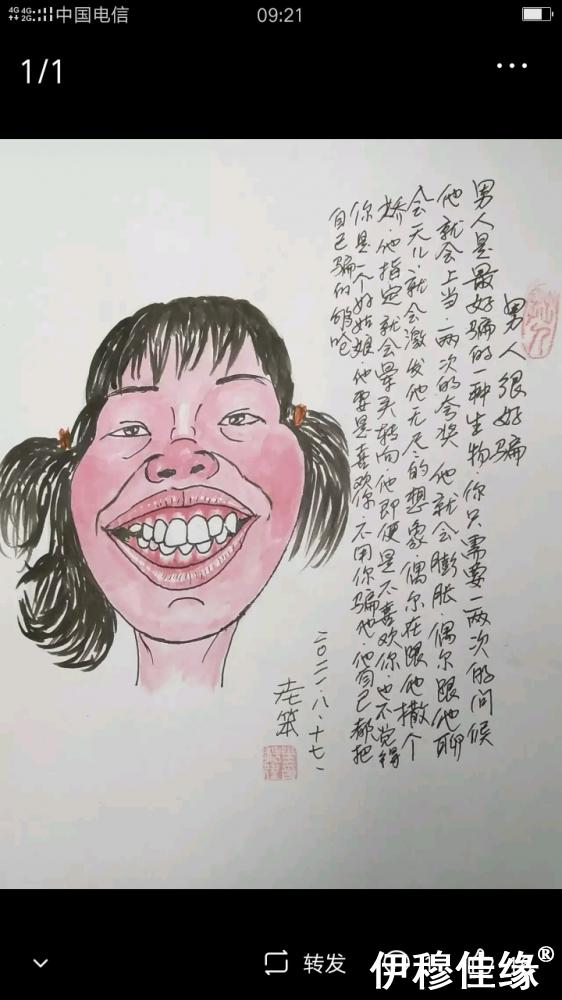 中国电信
09:21
1/1
男人很好骗
男人是最好骗的一种生物.你只需要一两次的问候
他就会上当.一两次的夸奖.他就会膨胀.偶尔跟他聊
会天儿.就会激发他无尽的想象.偶尔在跟他撒个
娇.他指定就会晕头转向.他即便是不喜欢你.也不觉得
你是一个好姑娘.他要是喜欢你.不用你骗他.他自己都把
自己骗的够呛
二〇二一.八.十七.
老笨
转发
伊穆佳缘®